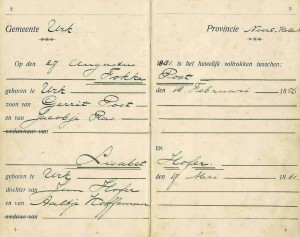 Gemeente Urk
Provincie
Op den 27 Augustus
is het huwelijk voltrokken tusschen:
Fokke Post
geboren te Urk den 10 Februari 1856
zoon van Gerrit Post
en van Jacobje Ras
weduwnaar van
EN
Lisabet Hofer
geboren te Urk den 17 Mei 1861
dochter van Jan Hofer
en van Aaltje Koffeman
weduwe van